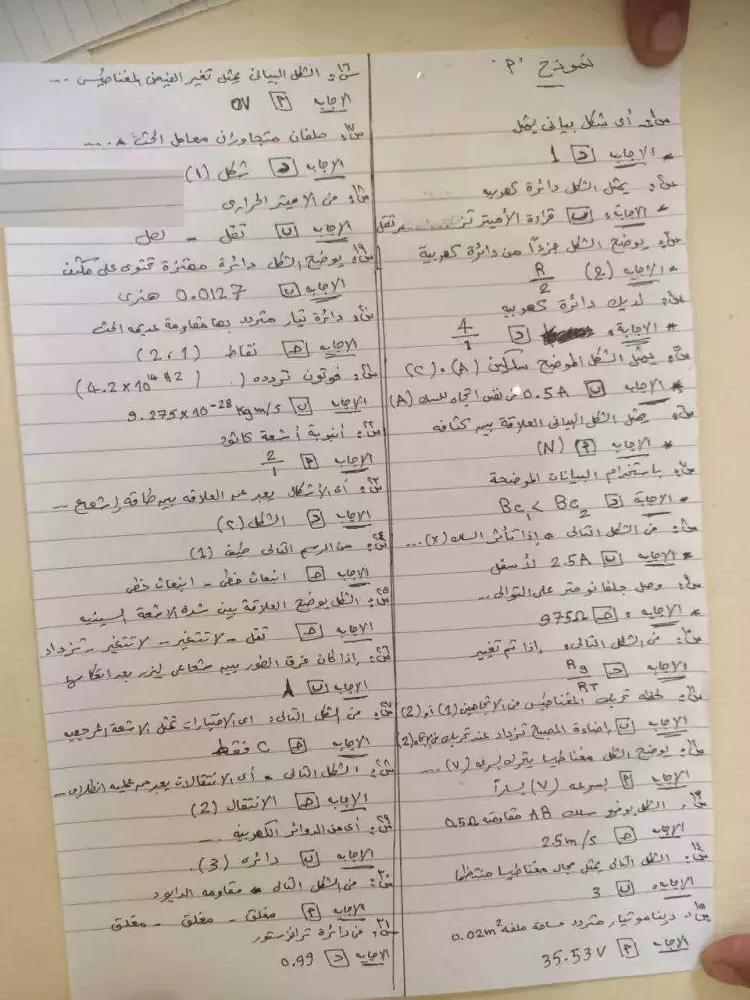 نموذج "أ"
س١: أى شكل بيانى يمثل
* الإجابه د 1
س٢: يمثل الشكل دائرة كهربيه
* الاجابة: ب قراءة الأميتر
س٣: يوضح الشكل جزءاً من دائرة كهربية
* الاجابه (2) R/2
س٤: لديك دائرة كهربيه
* الاجابة: د 4/1
س٥: يمثل الشكل الموضح سلكين (A)، (C)
* الاجابه ب 0.5A فى نفس اتجاه السلك (A)
س٦: يمثل الشكل البيانى العلاقة بين كثافه
* الاجابه أ (N)
س٧: باستخدام البيانات الموضحة
* الاجابة د Bc₁ < Bc₂
س٨: فى الشكل التالى * إذا تأثر السلك (x) ....
* الاجابه ب 2.5A لأسفل
س٩: وصل جلفانومتر على التوالى ..
* الاجابه: حـ 975Ω
س١٠: فى الشكل التالى، إذا تم تغيير
الاجابه د Rg/RT
س١١: لحظه تحريك المغناطيس فى الاتجاهين (1) أو (2)
الاجابه ب إضاءة المصباح تزداد عند تحريك فى الاتجاه (2)
س١٢: يوضح الشكل مغناطيسا يتحرك بسرعه (V) ....
الاجابه أ بسرعه (V) يساراً
س١٣: الشكل يوضح سلك AB مقاومته 0.5Ω
الاجابه حـ 25m/s
س١٤: الشكل التالى يمثل مجال مغناطيسيا منتظما
الاجابه: ب 3
س١٥: دينامو تيار متردد مساحة ملفه 0.02m²
الاجابه أ 35.53V
س١٦: الشكل البيانى يمثل تغير الفيض المغناطيسى ...
الاجابه أ 0V
س١٧: ملفان متجاوران معامل الحث * ....
الاجابه د شكل (1)
س١٨: فى الاميتر الحرارى
الاجابه ب تقل - تصل
س١٩: يوضح الشكل دائرة مهتزة تحتوى على مكثف
الاجابه ب 0.0127 هنرى
س٢٠: دائرة تيار متردد بها مقاومة عديمه الحث
الاجابه حـ نقاط (2،1)
س٢١: فوتون تردده (4.2x10¹⁴ HZ)
الاجابه ب 9.275x10⁻²⁸ Kgm/s
س٢٢: أنبوبة أشعة كاثود
الاجابه أ 2/1
س٢٣: أى الأشكال يعبر عن العلاقه بين طاقه إشعاع ...
الاجابه د الشكل (2)
س٢٤: من الرسم التالى طيف (1)
الاجابه حـ انبعاث خطى - انبعاث خطى
س٢٥: الشكل يوضح العلاقة بين شدة الاشعة السينيه
الاجابه حـ تقل - لا تتغير - لا تتغير - تزداد
س٢٦: إذا كان فرق الطور بين شعاعى ليزر بعد انعكاسها
الاجابه ب λ
س٢٧: من الشكل التالى: اى الاختيارات تمثل الاشعة المرجعيه
الاجابه حـ C فقط
س٢٨: الشكل التالى * أى الانتقالات يعبر عن عمليه انطلاق ..
الاجابه حـ الانتقال (2)
س٢٩: أى من الدوائر الكهربيه ...
الاجابه ب دائره (3).
س٣٠: فى الشكل التالى * مقاومه الدايود
الاجابه أ مغلق - مغلق - مغلق
س٣١: فى دائرة ترانزستور
الاجابه د 0.99